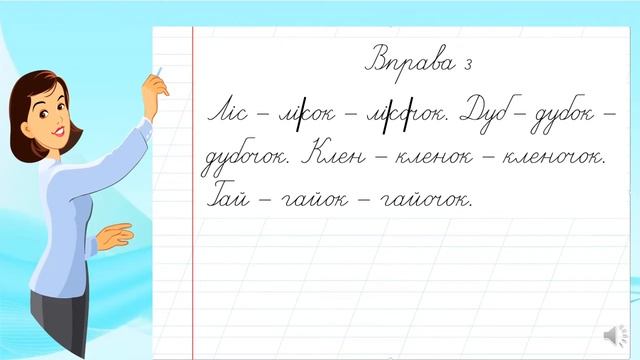 Вправа 3
Ліс – лісок – лісочок. Дуб – дубок –
дубочок. Клен – кленок – кленочок.
Гай – гайок – гайочок.